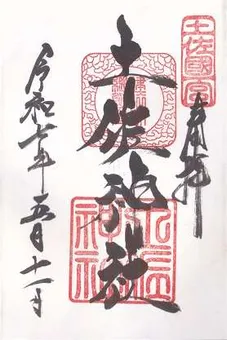 土佐國一宮
奉拝
土佐神社
令和七年五月十一日